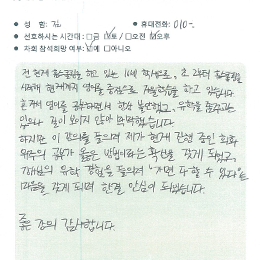 • 성 함: • 휴대전화: 010-
• 선호하시는 시간대: □금 □토 / □오전 □오후
• 차회 참석희망 여부: □예 □아니오
전 현재 홈스쿨링을 하고 있는 16세 학생으로, 초 2부터 홈스쿨링을
시작해 현재까지 영어를 중점으로 자율학습을 하고 있습니다.
혼자서 영어를 공부하면서 한편 불안했고, 유학을 준비하는
입장이나 길이 보이지 않아 막막했습니다.
하지만 이 강의를 들으며 제가 현재 진행 중인 회화
위주의 공부가 옳은 방법이라는 확신을 갖게 되었고,
유학 경험을 들으며 '가면 다 할 수 있다'는
마음을 갖게 되며 한결 안심이 되었습니다.
좋은 강의 감사합니다.